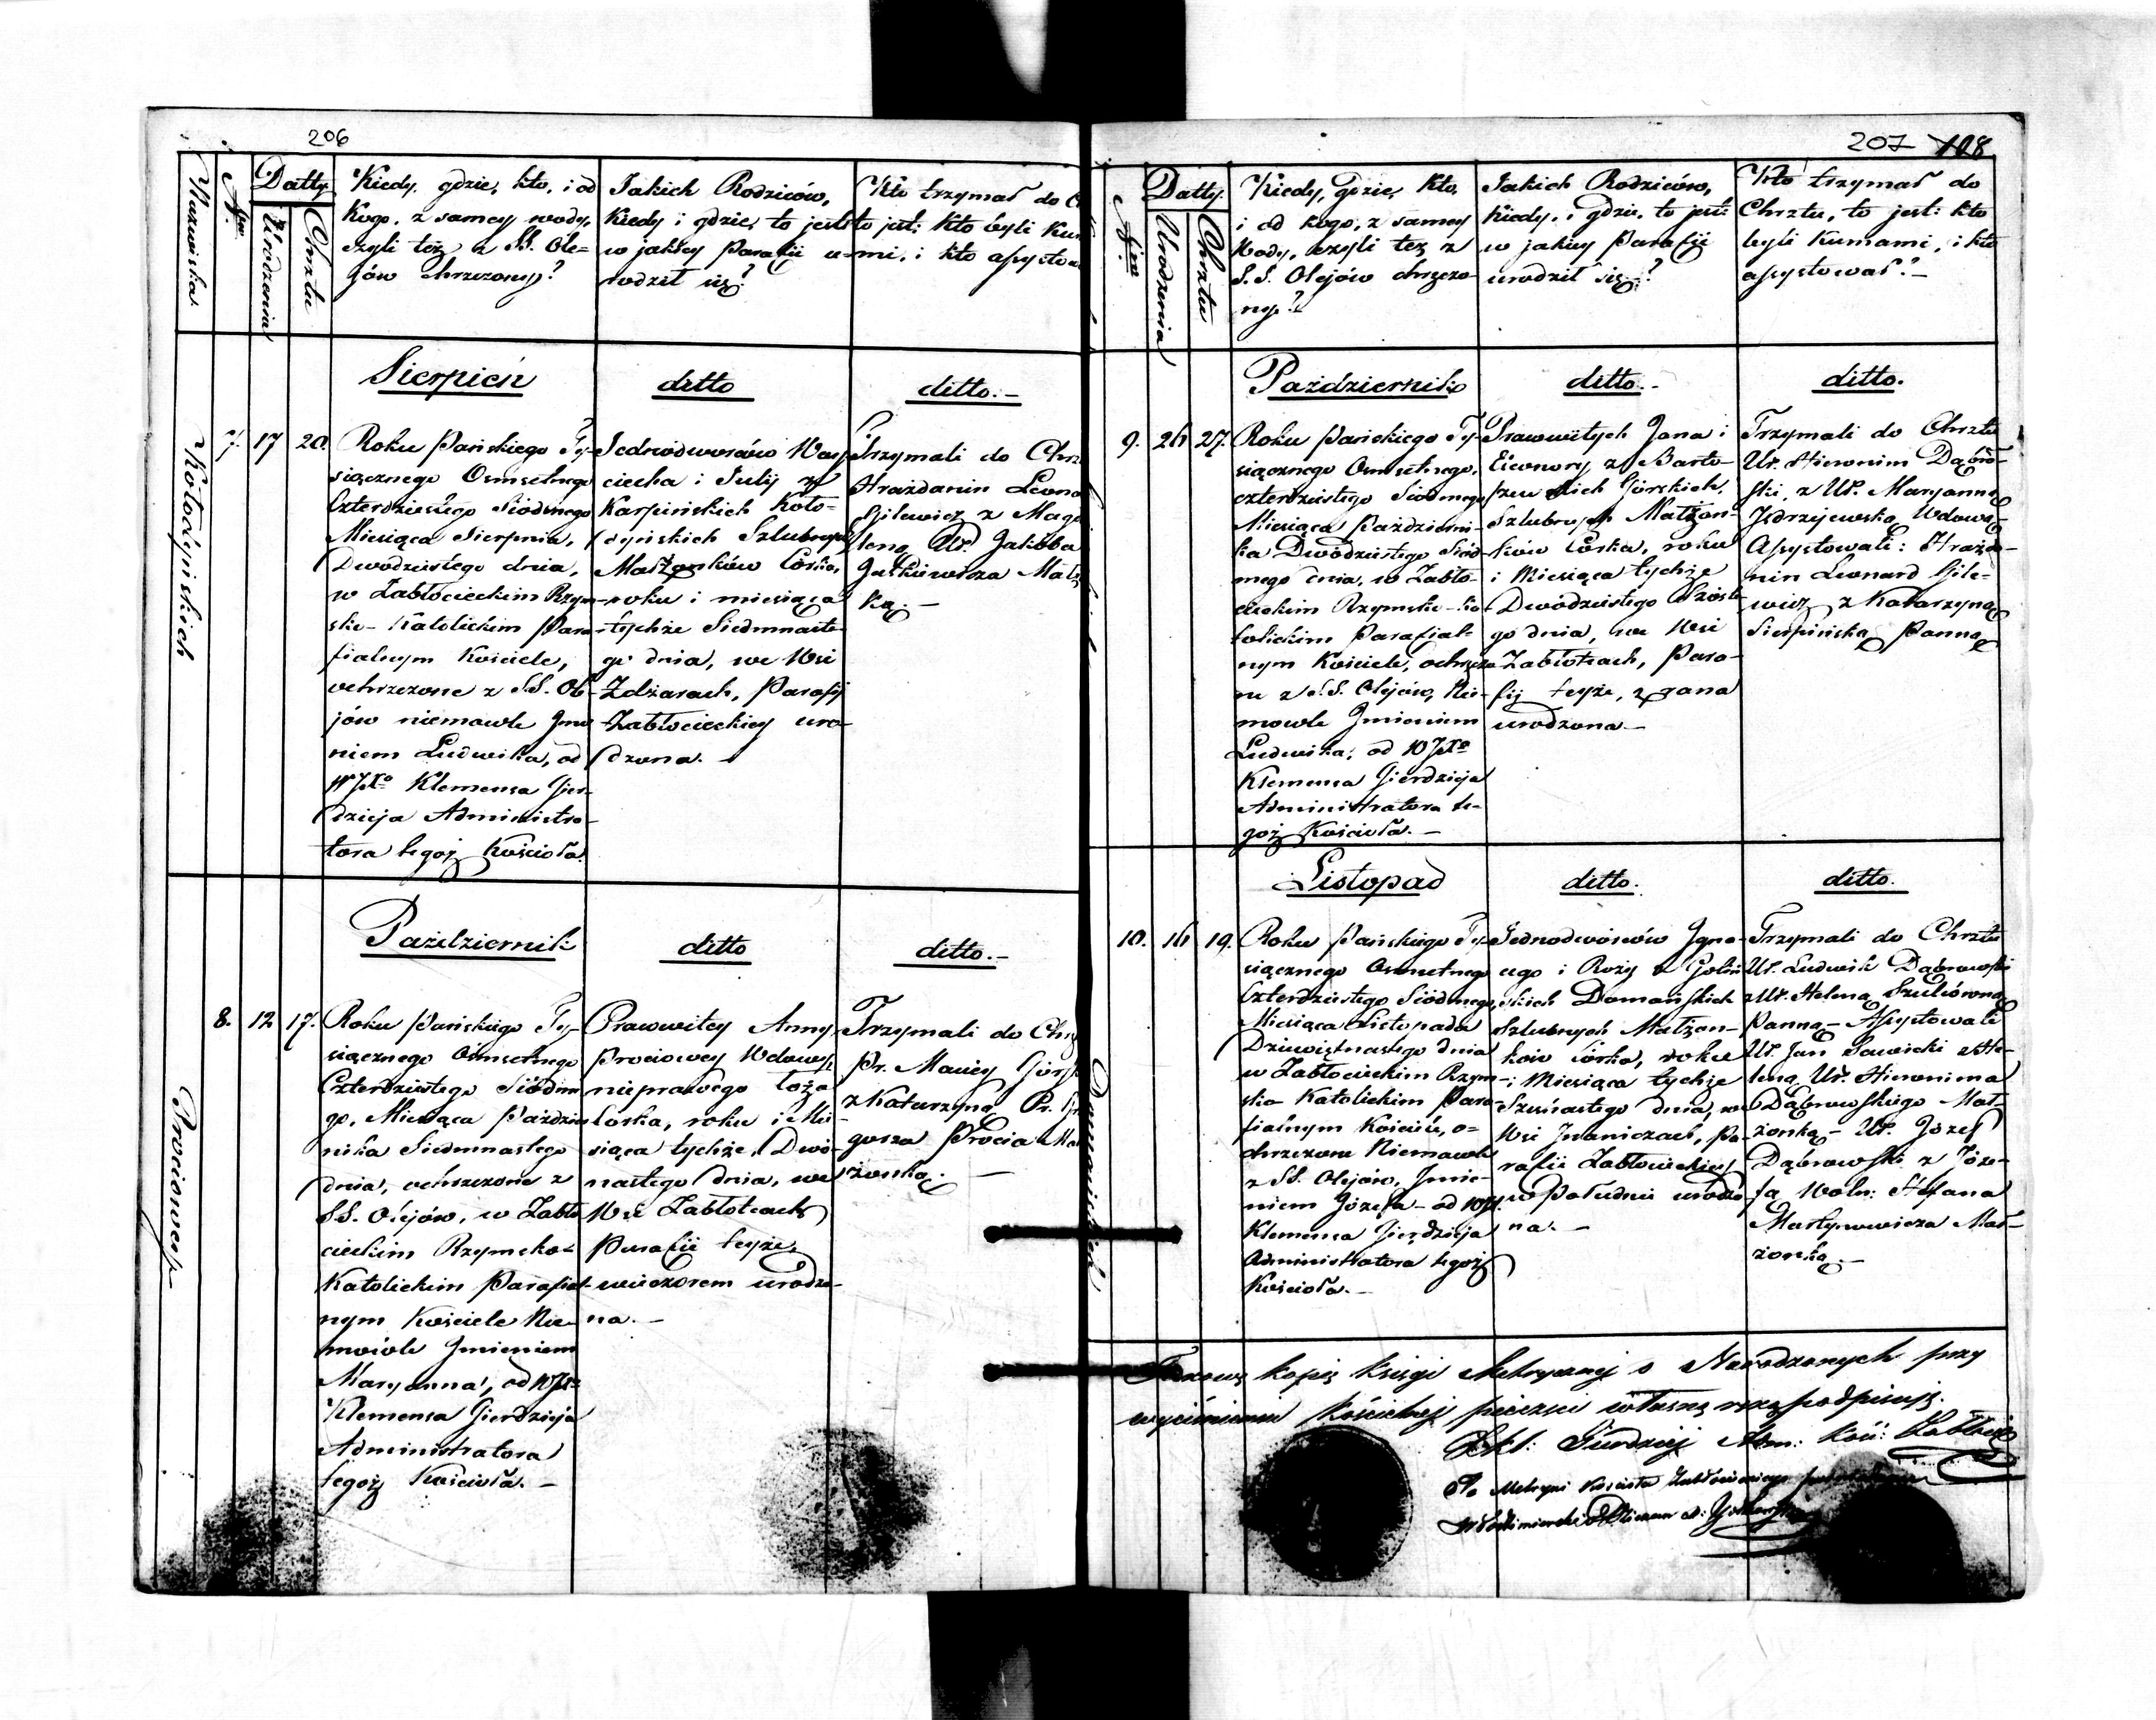 206
Nazwiska.
Nro
Datty
Urodzenia
Chrztu
Kiedy, gdzie, kto, i od
Kogo, z samey wody,
czyli też z SS. Ole-
jów chrzczony?
Jakich Rodziców,
Kiedy i gdzie, to jest:
w jakiey Parafii u-
rodził się?
Kto trzymał do
to jest: kto byli Ku
mi, i kto assystow
Kołodyńskich
Sierpień
ditto
ditto.-
7. 17 20.
Roku Pańskiego Ty-
siącznego Osmsetnego
Czterdziestego Siódmego
Miesiąca Sierpnia,
Dwudziestego dnia,
w Zabłocieckim Rzym-
sko-Katolickim Para-
fialnym Kościele,
ochrzczone z SS. Ole-
jów niemowle Jmie
niem Ludwika, od
WJXa Klemensa Gier-
dzieja Administra-
tora tegoż Kościoła.
Jednodworców Woy-
ciecha i Julij z
Karpińskich Koło-
dyńskich Szlubnych
Małżonków Córka,
roku i miesiąca
tychże Siedmnaste-
go dnia, we Wsi
Zdżarach, Parafij
Zabłocieckiey uro-
dzona.-
Trzymali do Chrz
Hrażdanin Leona
Gilewicz z Magd
leną Ur. Jakóba
Jutkiewicza Małż
ką.-
Prociowey
Październik
ditto
ditto.-
8. 12 17.
Roku Pańskiego Ty-
siącznego Osmsetnego
Czterdziestego Siódme
go, Miesiąca Paździer
nika Siedmnastego
dnia, ochrzczone z
SS. Olejów, w Zabło
cieckim Rzymsko-
Katolickim Parafial-
nym Kościele Nie-
mowle Jmieniem
Maryanna, od WJXa
Klemensa Gierdzieja
Administratora
tegoż Kościoła.-
Prawowitey Anny
Prociowey Wdowy,
nieprawego łoża
Córka, roku i Mie-
siąca tychże, Dwu-
nastego dnia, we
Wsi Zabłotcach
Parafii teyże,
wieczorem urodzo-
na.-
Trzymali do Chrz
Pr. Maciey Górsk
z Katarzyną Pr.
gorza Procia Mał
żonką.-
207 108
Nro
Datty.
Urodzenia
Chrztu
Kiedy, gdzie, kto,
i od kogo, z samey
Wody, czyli też z
S.S. Olejów chrzczo-
ny?
Jakich Rodziców,
Kiedy, i gdzie, to jest:
w jakiey Parafij
urodził się?
Kto trzymał do
Chrztu, to jest: kto
byli Kumami, i kto
assystował?-
Październik
ditto.-
ditto.
9. 26 27.
Roku Pańskiego Ty-
siącznego Osmsetnego,
czterdziestego Siódmego
Miesiąca Październi-
ka Dwudziestego Siód-
mego dnia, w Zabło-
cieckim Rzymsko-Ka-
tolickim Parafial-
nym Kościele, ochrzczo-
ne z S.S. Olejów, Nie-
mowle Jmieniem
Ludwika, od WJXa
Klemensa Gierdzieja
Administratora te-
goż Kościoła.-
Prawowitych Jana i
Eleonory z Barto-
Górskich,
Szlubnych Małżon-
ków Córka, roku
i Miesiąca tychże
Dwudziestego Szóste
go dnia, we Wsi
Zabłotcach, Para-
fij teyże, z rana
urodzona.-
Trzymali do Chrztu
Ur. Hieronim Dąbro-
ski, z Ur. Maryanną
Jędrzejewską Wdową.
Assystowali: Hrażda-
nin Leonard Gile-
wicz z Katarzyną
Sierpińską Panną
Domańskich
Listopad
ditto.
ditto.
10. 16 19.
Roku Pańskiego Ty-
siącznego Osmsetnego
Czterdziestego Siódmego,
Miesiąca Listopada
Dziewiętnastego dnia
w Zabłocieckim Rzym-
sko-Katolickim Para-
fialnym Kościele, o-
chrzczone Niemowle
z SS. Olejów, Jmie-
niem Józefa-od WJX.
Klemensa Gierdzieja
Administratora tegoż
Kościoła.-
Jednodworców Igna-
cego i Rozy z Goliń
skich Domańskich
Szlubnych Małżon-
ków Córka, roku
i Miesiąca tychże
Szesnastego dnia, we
Wsi Iwaniczach, Pa-
rafii Zabłocieckiey
w Południe urodzo
na.-
Trzymali do Chrztu
Ur. Ludwik Dąbrowski
z Ur. Heleną Szulcówną
Panną-Assystowali
Ur. Jan Sawicki z He-
leną Ur. Hieronima
Dąbrowskiego Mał-
żonką-Ur. Józef
Dąbrowski z Józe-
fą Woln: Stefana
Martynowicza Mał-
żonką.-
kopię księgi Metrycznej o Narodzonych przy
wyciśnieniu Kościelnej pieczęci własną ręką podpisuję.
Gierdziej Adm: Koś:
Metryki Kościoła